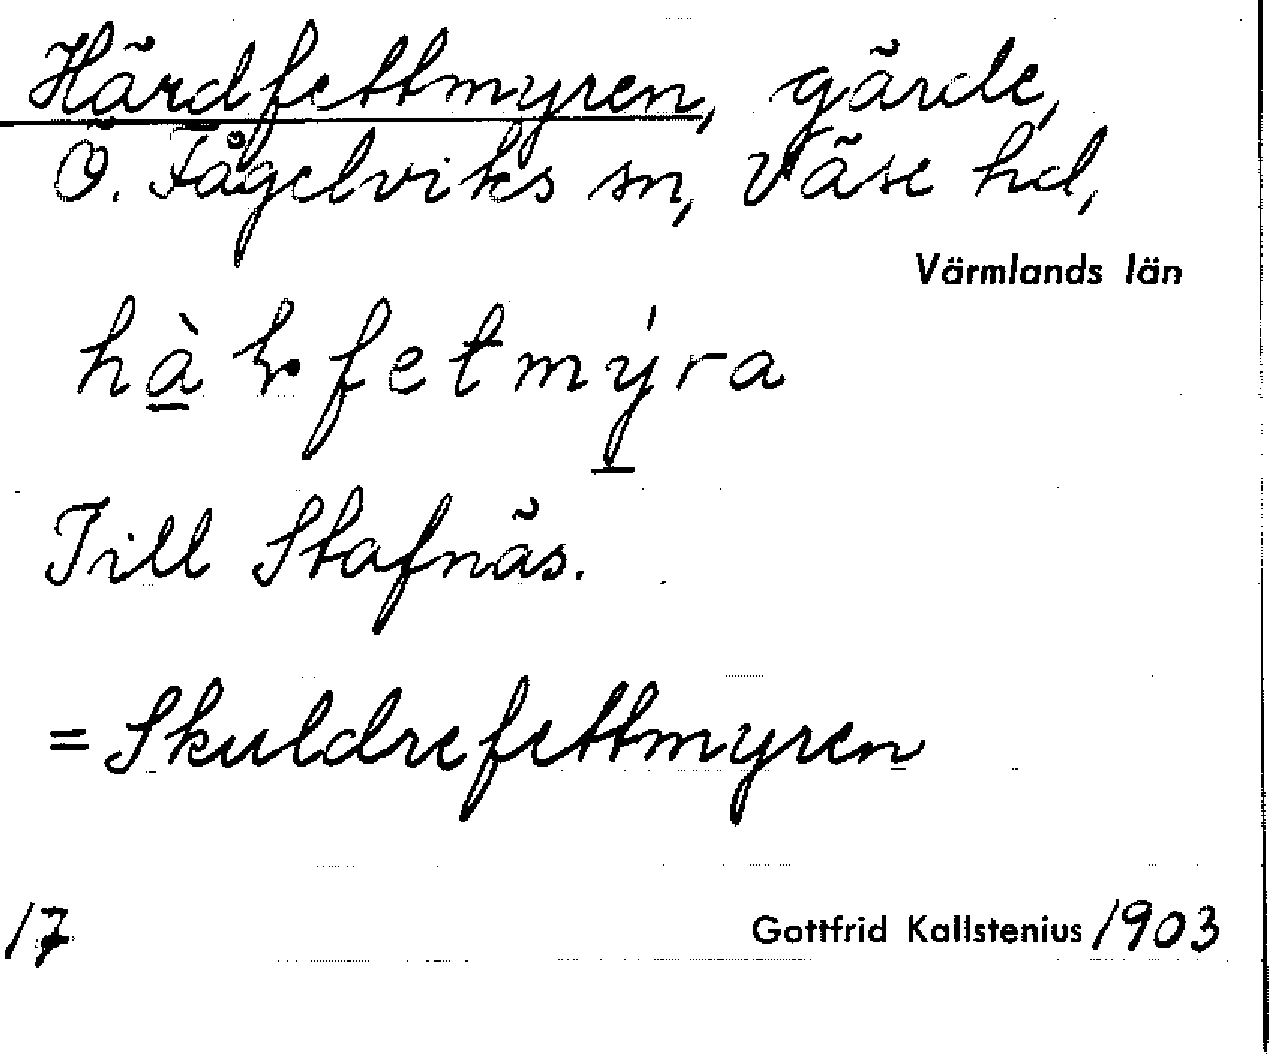 Härdfettmyren, gärde,
Ö. Fågelviks sn, Väse hd,
Värmlands län
Till Stafnäs.
= Skuldrefettmyren
17
Gottfrid Kallstenius 1903